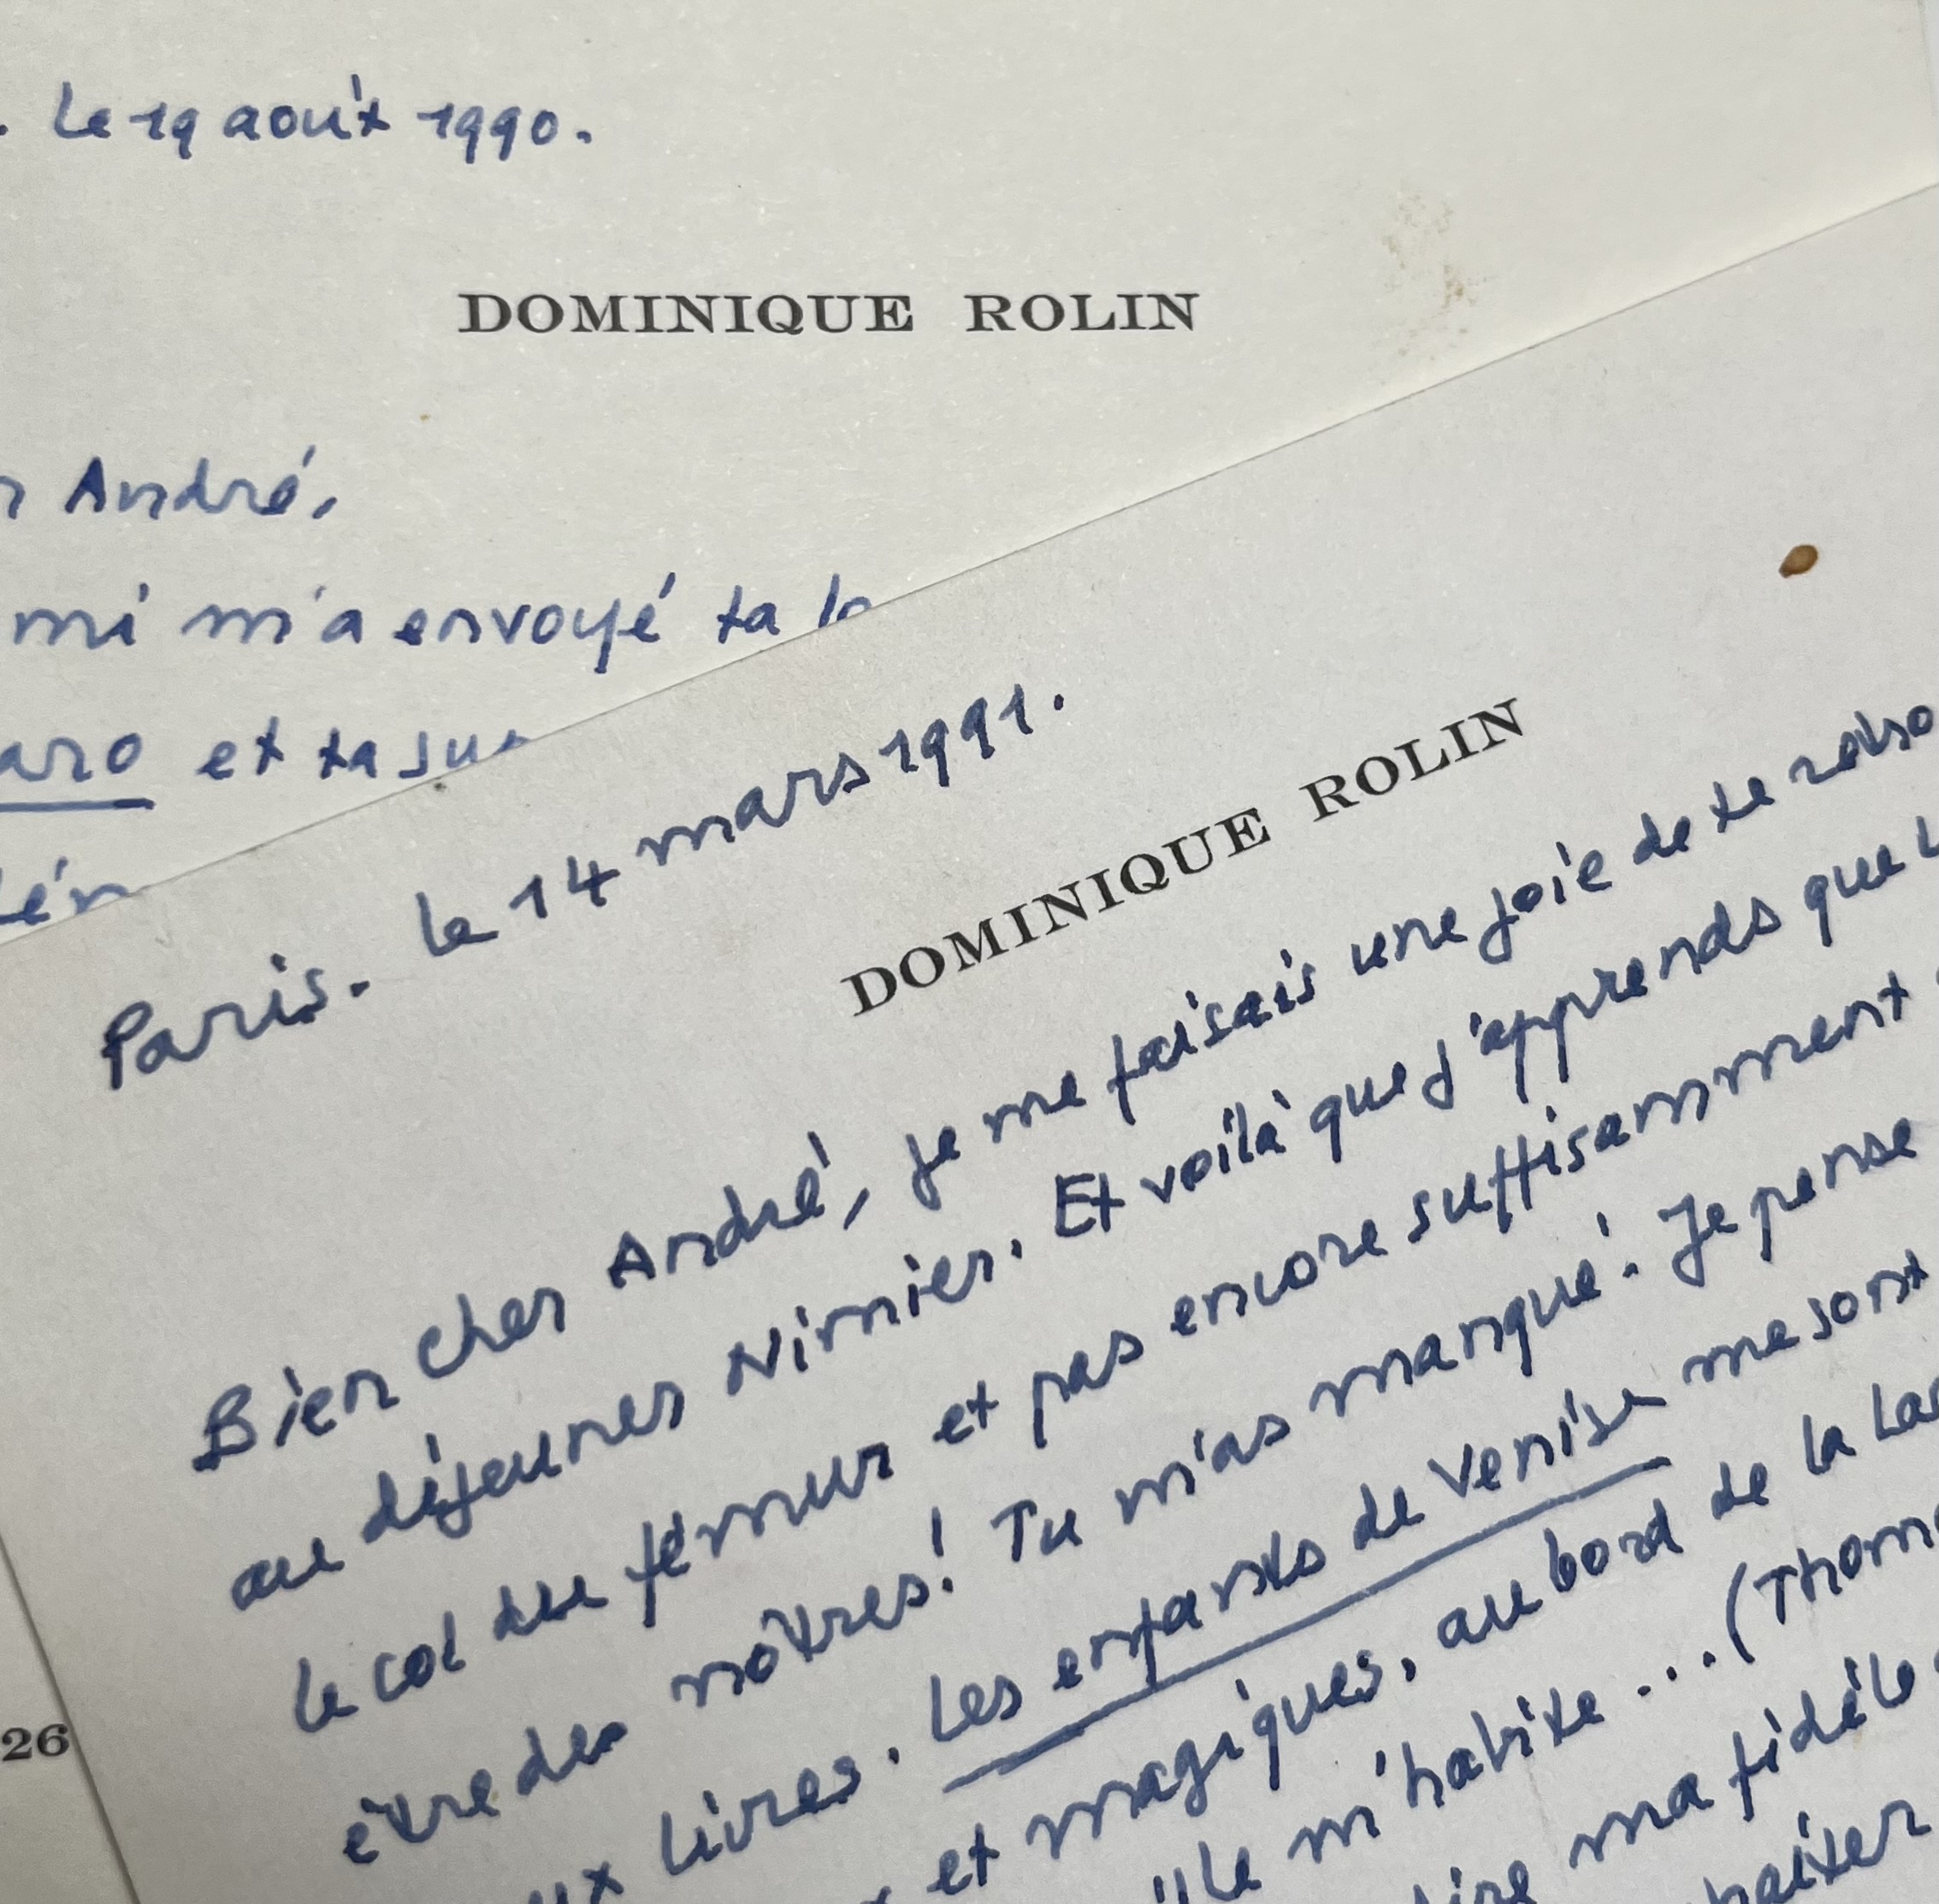 . Le 19 août 1990.
DOMINIQUE ROLIN
André,
mi m'a envoyé ta
aro et ta
Paris. Le 14 mars 1991.
DOMINIQUE ROLIN
Bien cher André, je me faisais une joie de te
au déjeuner Nimier. Et voilà que j'apprends que
le col du fémur et pas encore suffisamment
être des nôtres! Tu m'as manqué. Je pense
livres. Les enfants de Venise me sont
et magiques, au bord de la
m'habite... (
ma
26